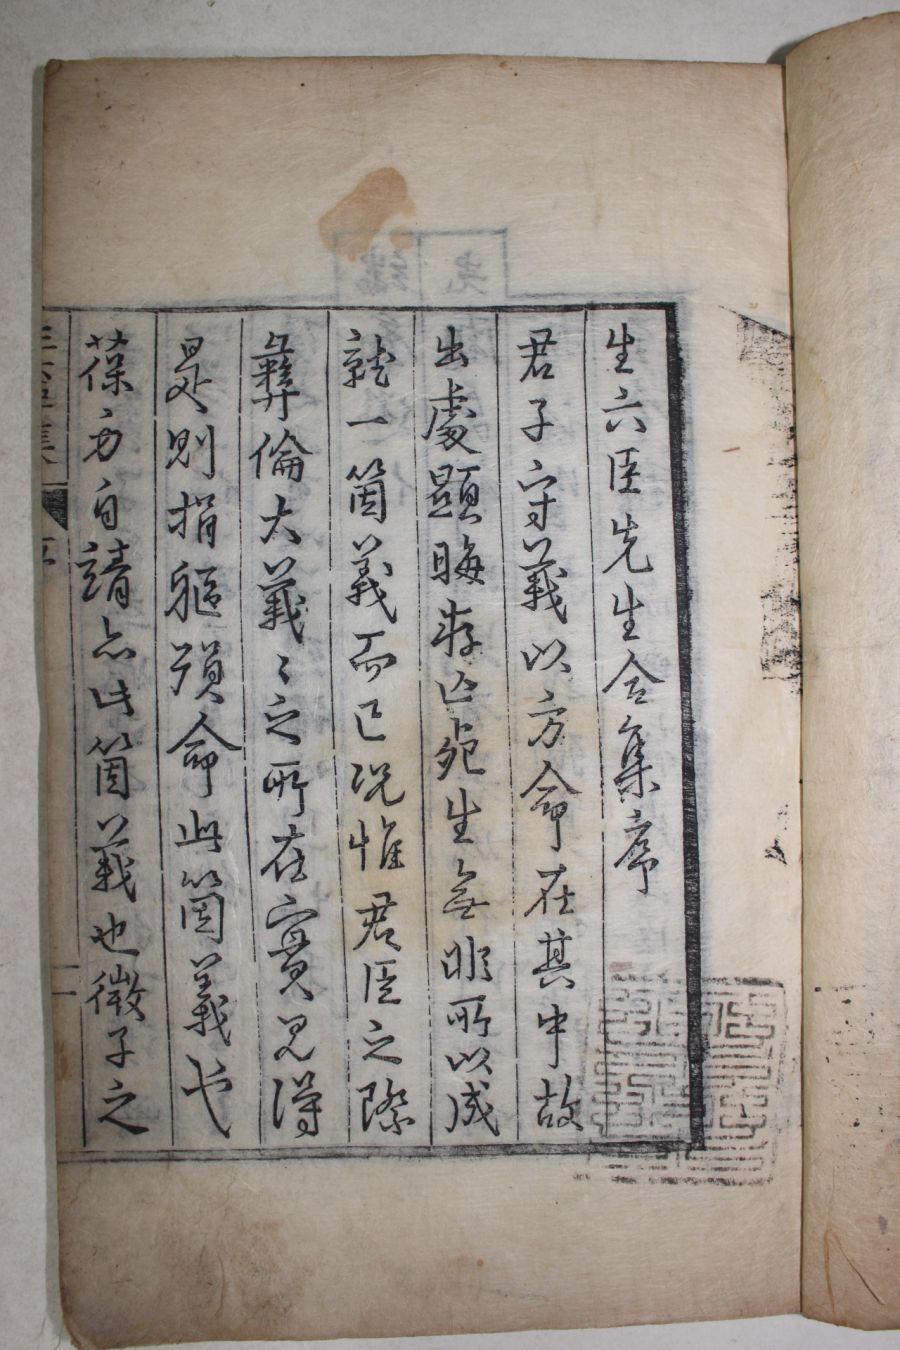 生六臣先生合集序
君子守義以方命在其中故
出處顯晦存亡死生無非所以成
就一箇義而已況惟君臣之際
彝倫大義〻之所在實見得
是則捐軀殞命此箇義也
葆身自靖亦此箇義也微子之